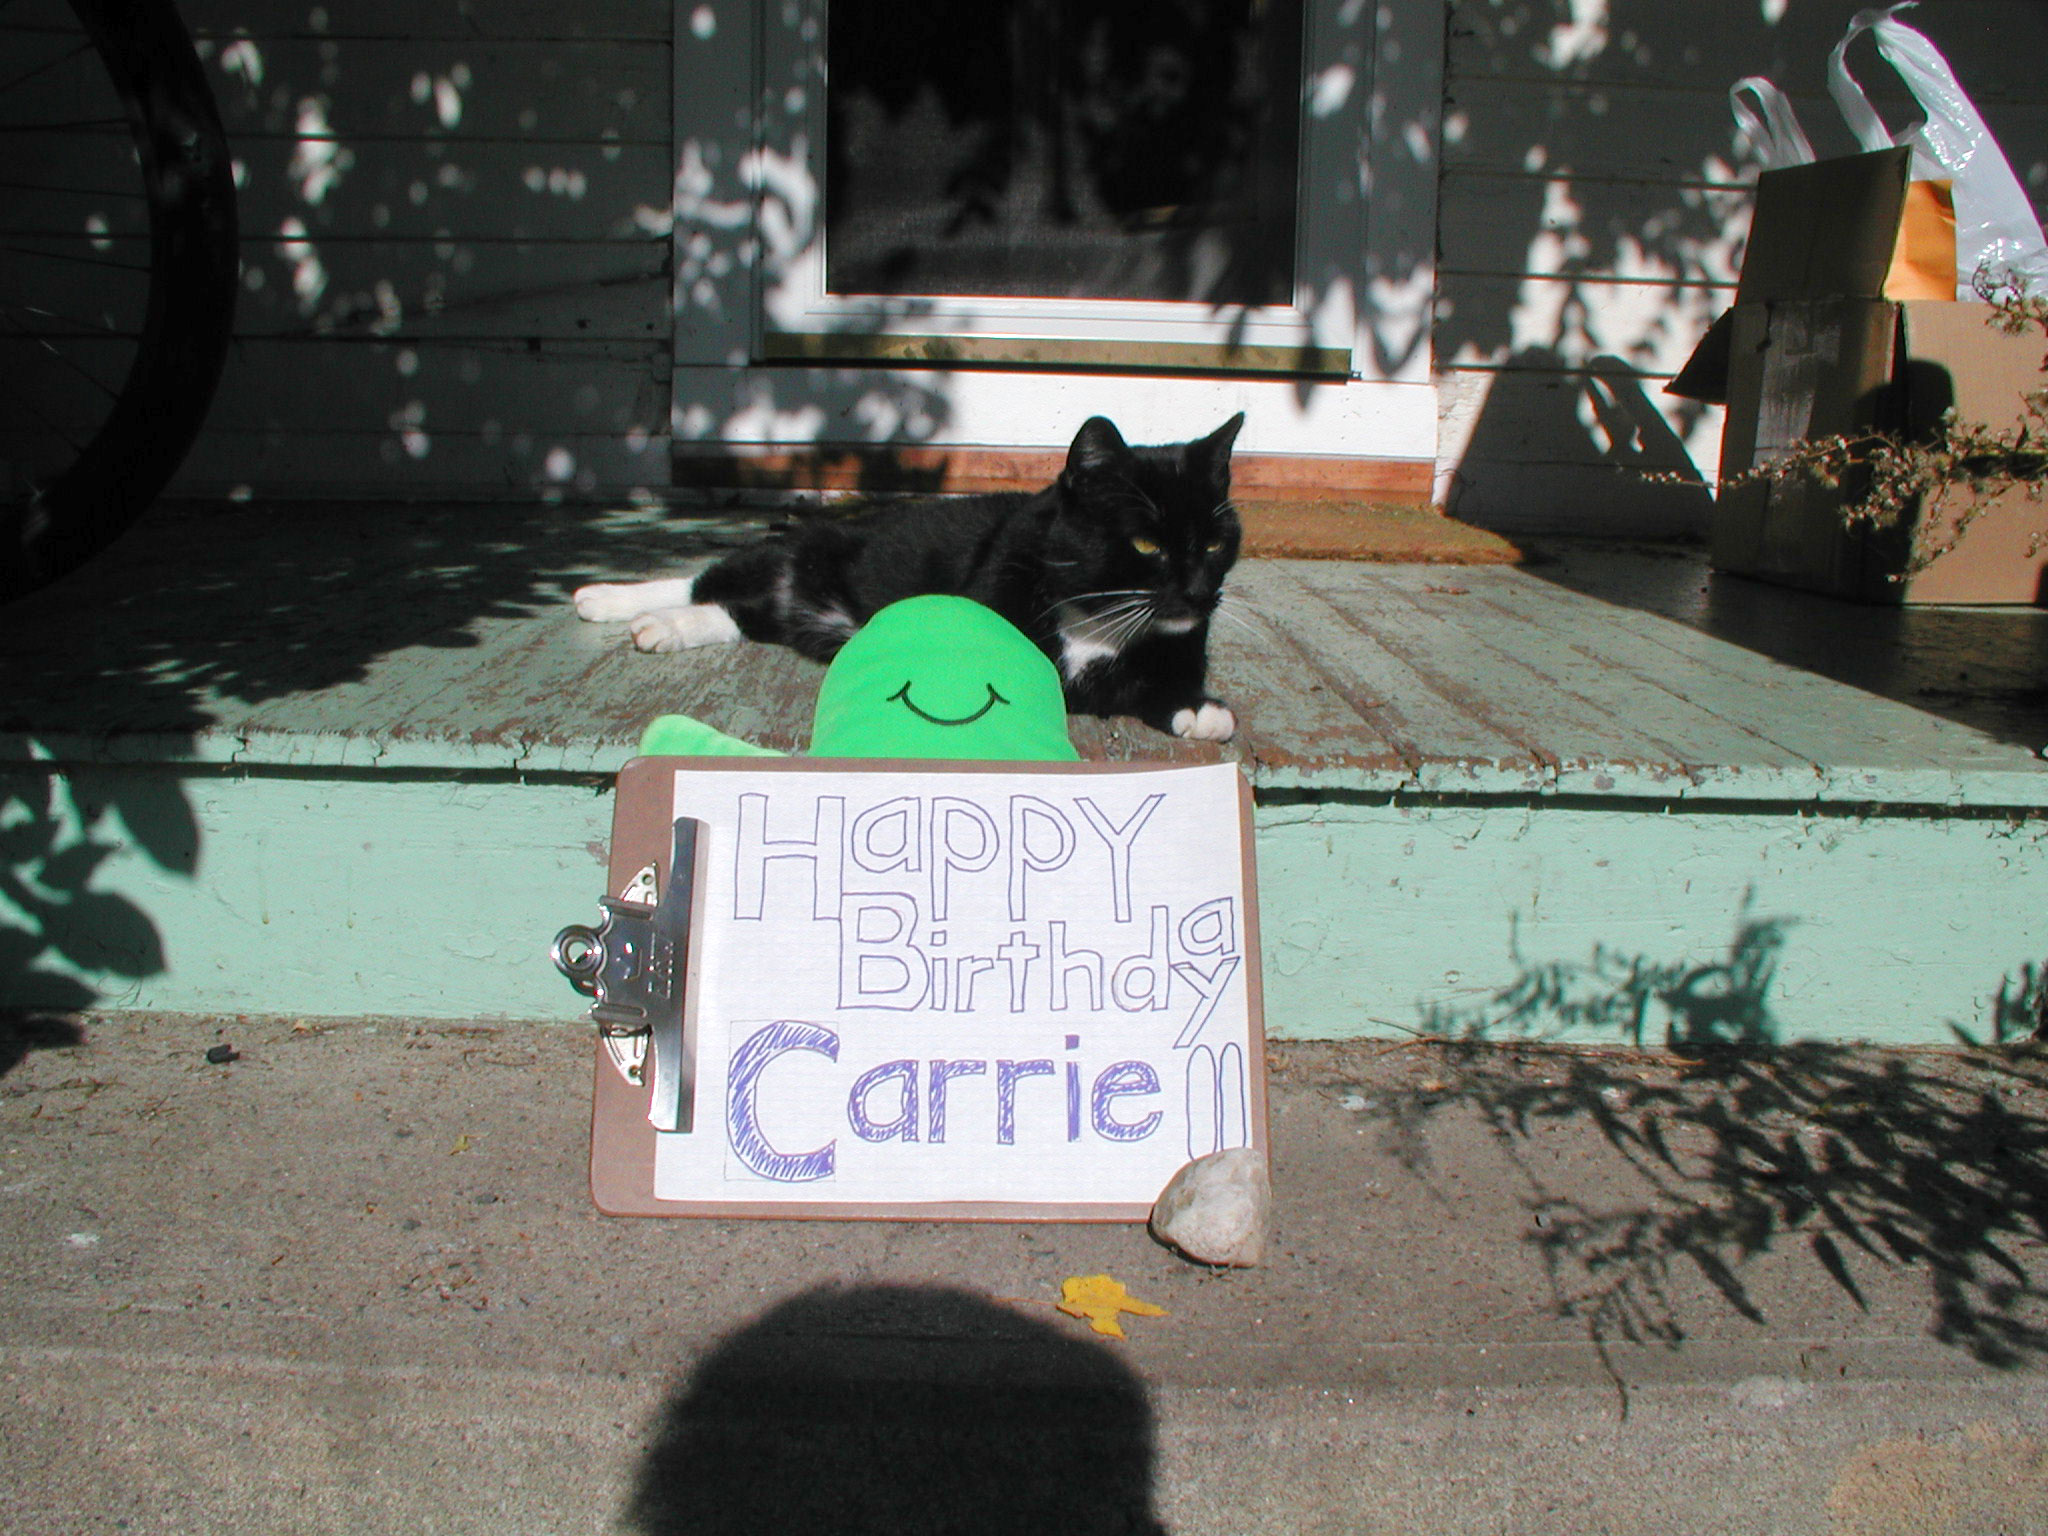 Happy
Birthday
Carrie !!